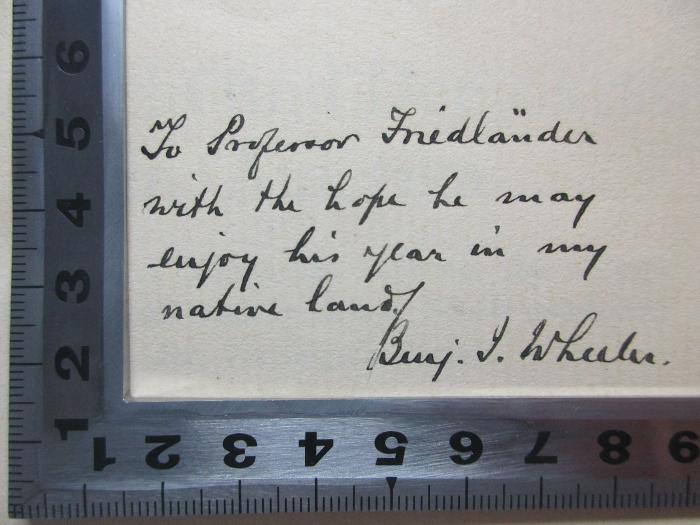 To Professor Friedländer
with the hope he may
enjoy his year in my
native land/
Benj. I. Wheeler.
6
5
4
3
2
1
1 2 3 4 5 6 7 8 9